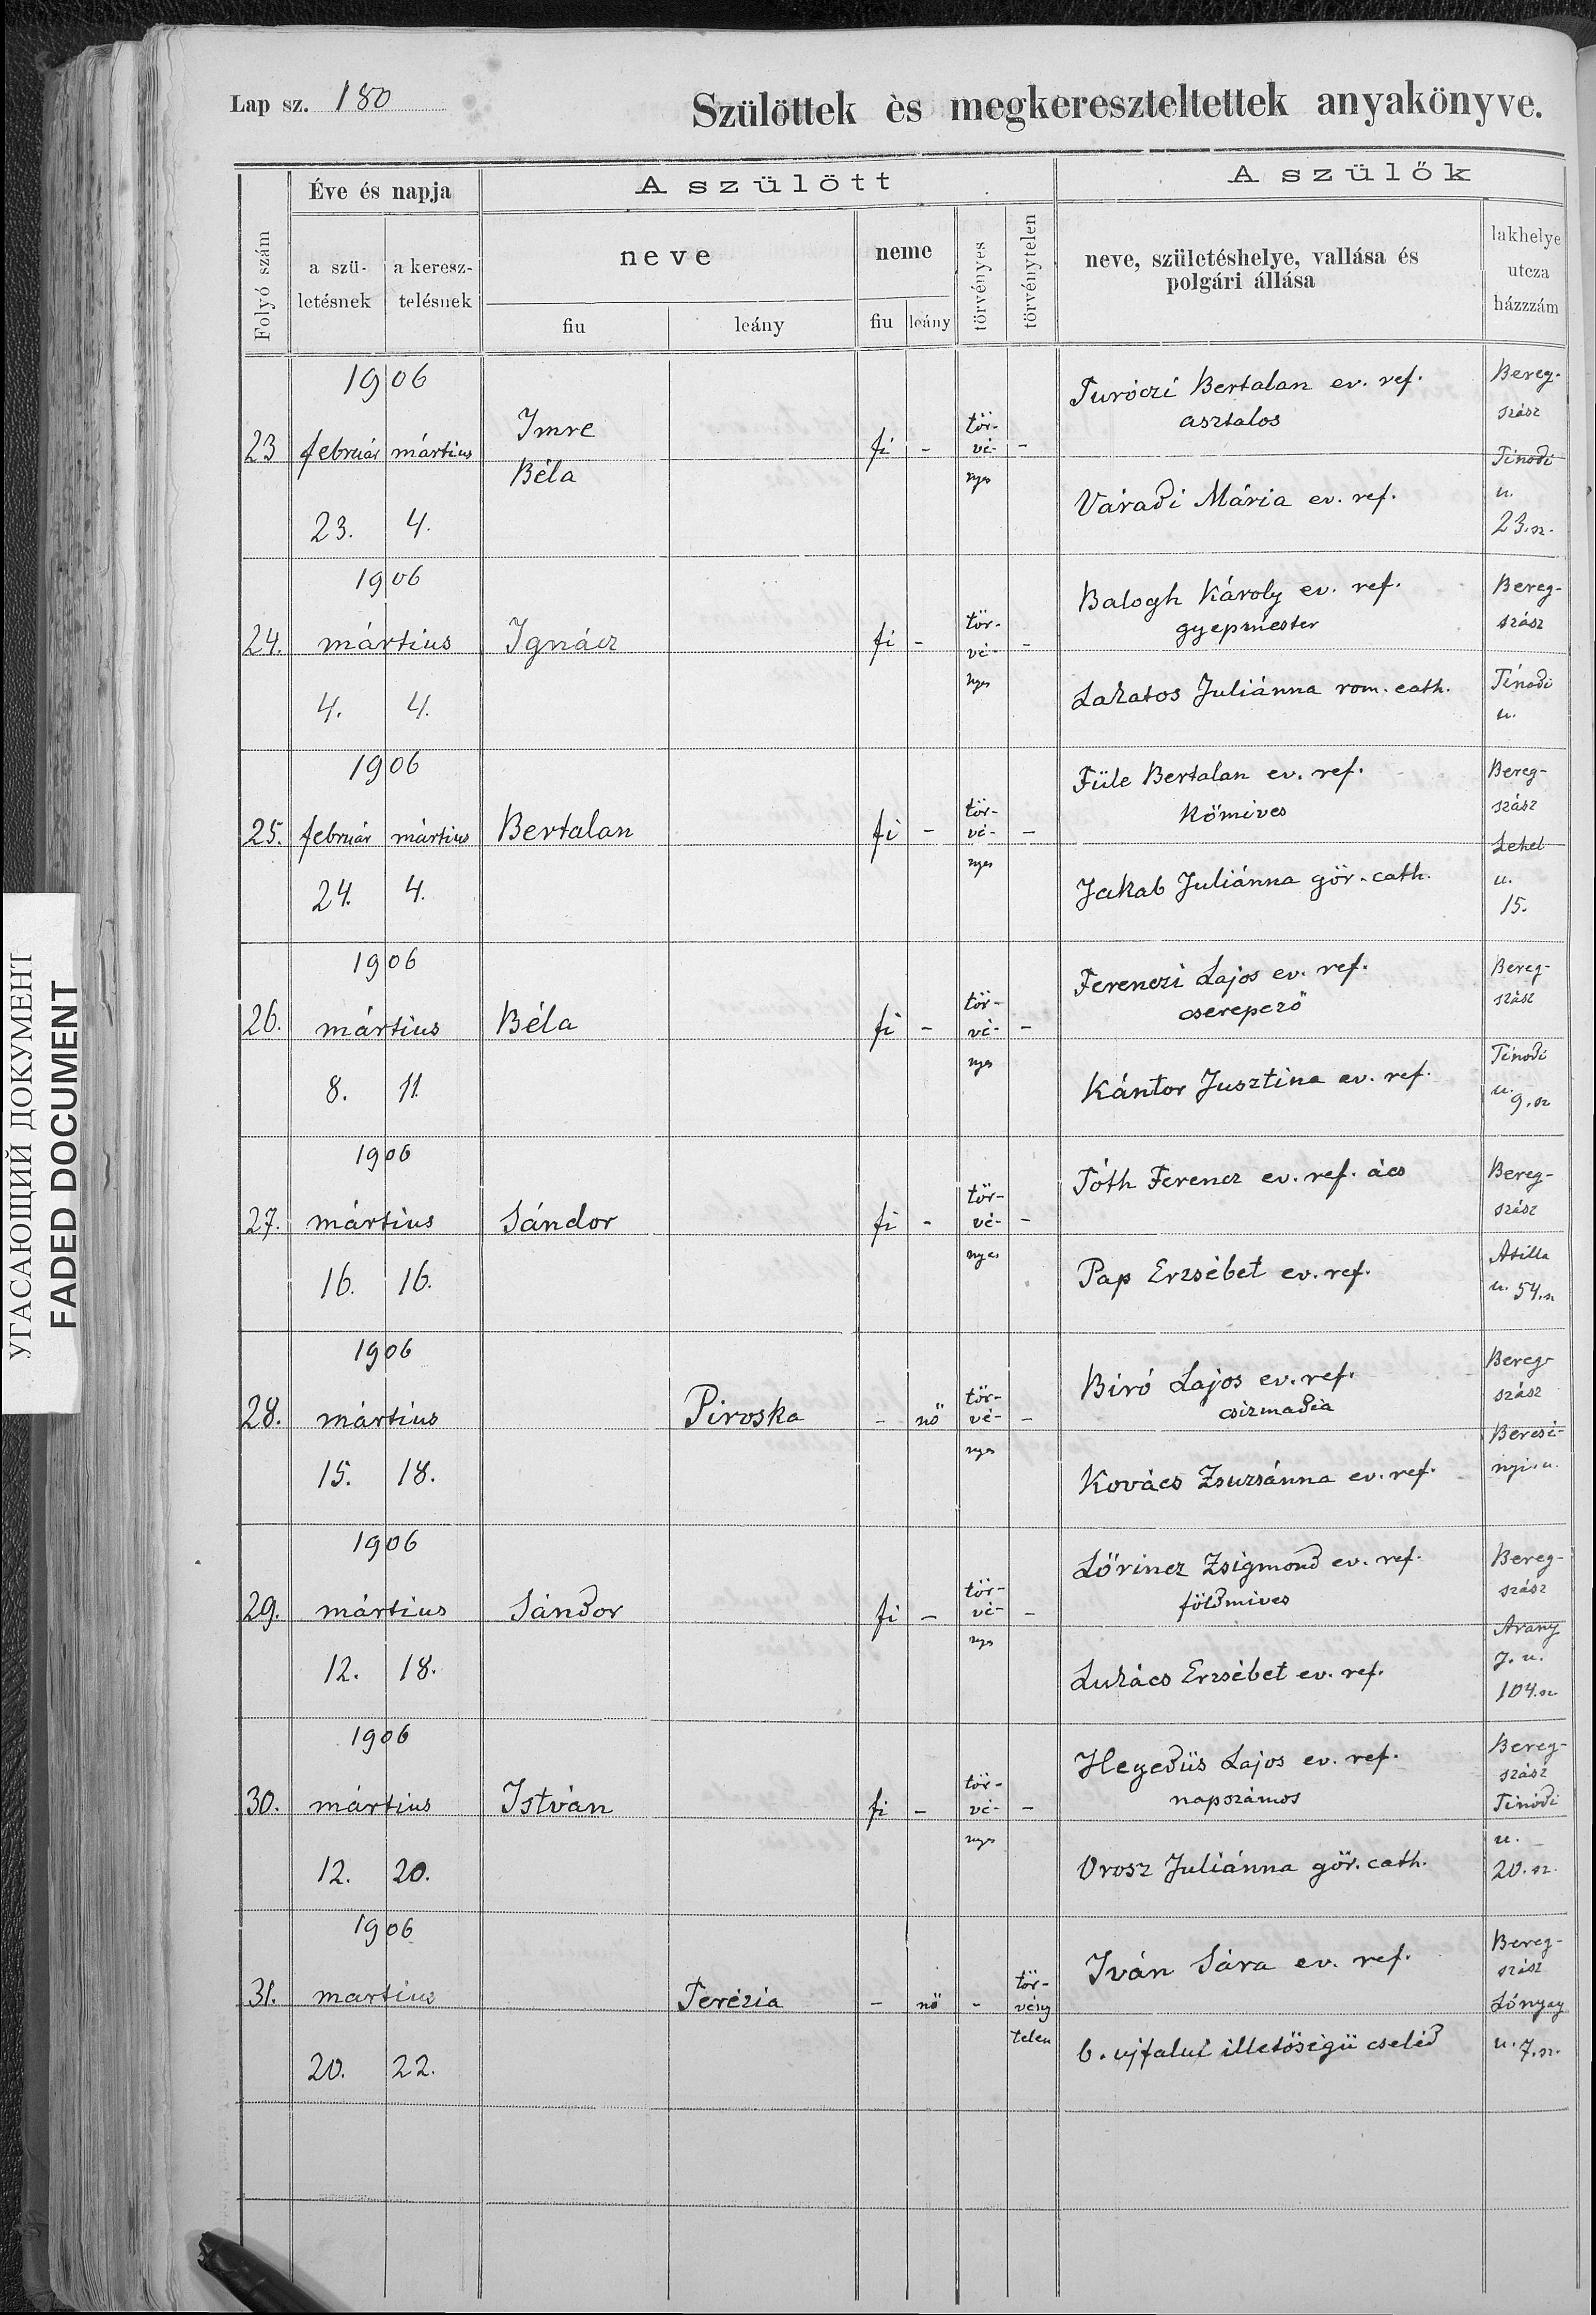 Lap sz. 180
Szülöttek ès megkereszteltettek anyakönyve.
Folyó szám
Éve és napja
a szü-
letésnek
a keresz-
telésnek
A szülött
neve
fiu
leány
neme
fiu
leány
törvényes
törvénytelen
A szülők
neve, születéshelye, vallása és
polgári állása
lakhelye
utcza
házzzám
1906
23 február 23. mártius 4.
Imre
Béla
fi - tör-
vé-
nyes
-
Turóczi Bertalan ev. ref.
asztalos
Váradi Mária ev. ref.
Bereg-
szász
Tinodi
u.
23. sz.
1906
24. mártius
4. 4.
Ignácz
fi - tör-
vé-
nyes
-
Balogh Károly ev. ref.
gyepmester
Lakatos Juliánna rom. cath.
Bereg-
szász
Tinodi
u.
1906
25. február 24. mártius 4.
Bertalan
fi - tör-
vé-
nyes
-
Füle Bertalan ev. ref.
kömives
Jakab Juliánna gör. cath.
Bereg-
szász
Lehel
u.
15.
1906
26. mártius
8. 11.
Béla
fi - tör-
vé-
nyes
-
Ferenczi Lajos ev. ref.
cserepező
Kántor Jusztina ev. ref.
Bereg-
szász
Tinodi
u. 9. sz
1906
27. mártius
16. 16.
Sándor
fi - tör-
vé-
nyes
-
Tóth Ferencz ev. ref. ács
Pap Erzsébet ev. ref.
Bereg-
szász
Atilla
u. 54. sz
1906
28. mártius
15. 18.
Piroska
- nő tör-
vé-
nyes
-
Biró Lajos ev. ref.
csizmadia
Kovács Zsuzsánna ev. ref.
Bereg-
szász
Bercsé-
nyi. u.
1906
29. mártius
12. 18.
Sándor
fi - tör-
vé-
nyes
-
Lőrincz Zsigmond ev. ref.
földmives
Lukács Erzsébet ev. ref.
Bereg-
szász
Arany
J. u.
104. sz
1906
30. mártius
12. 20.
István
fi - tör-
vé-
nyes
-
Hegedüs Lajos ev. ref.
napszámos
Orosz Juliánna gör. cath.
Bereg-
szász
Tinódi
u.
20. sz.
1906
31. martius
20. 22.
Terézia
- nő - tör-
vény
telen
Iván Sára ev. ref.
b. ujfalui illetőségü cseléd
Bereg-
szász
Lónyay
u. 7. sz.
УГАСАЮЩИЙ ДОКУМЕНТ
FADED DOCUMENT